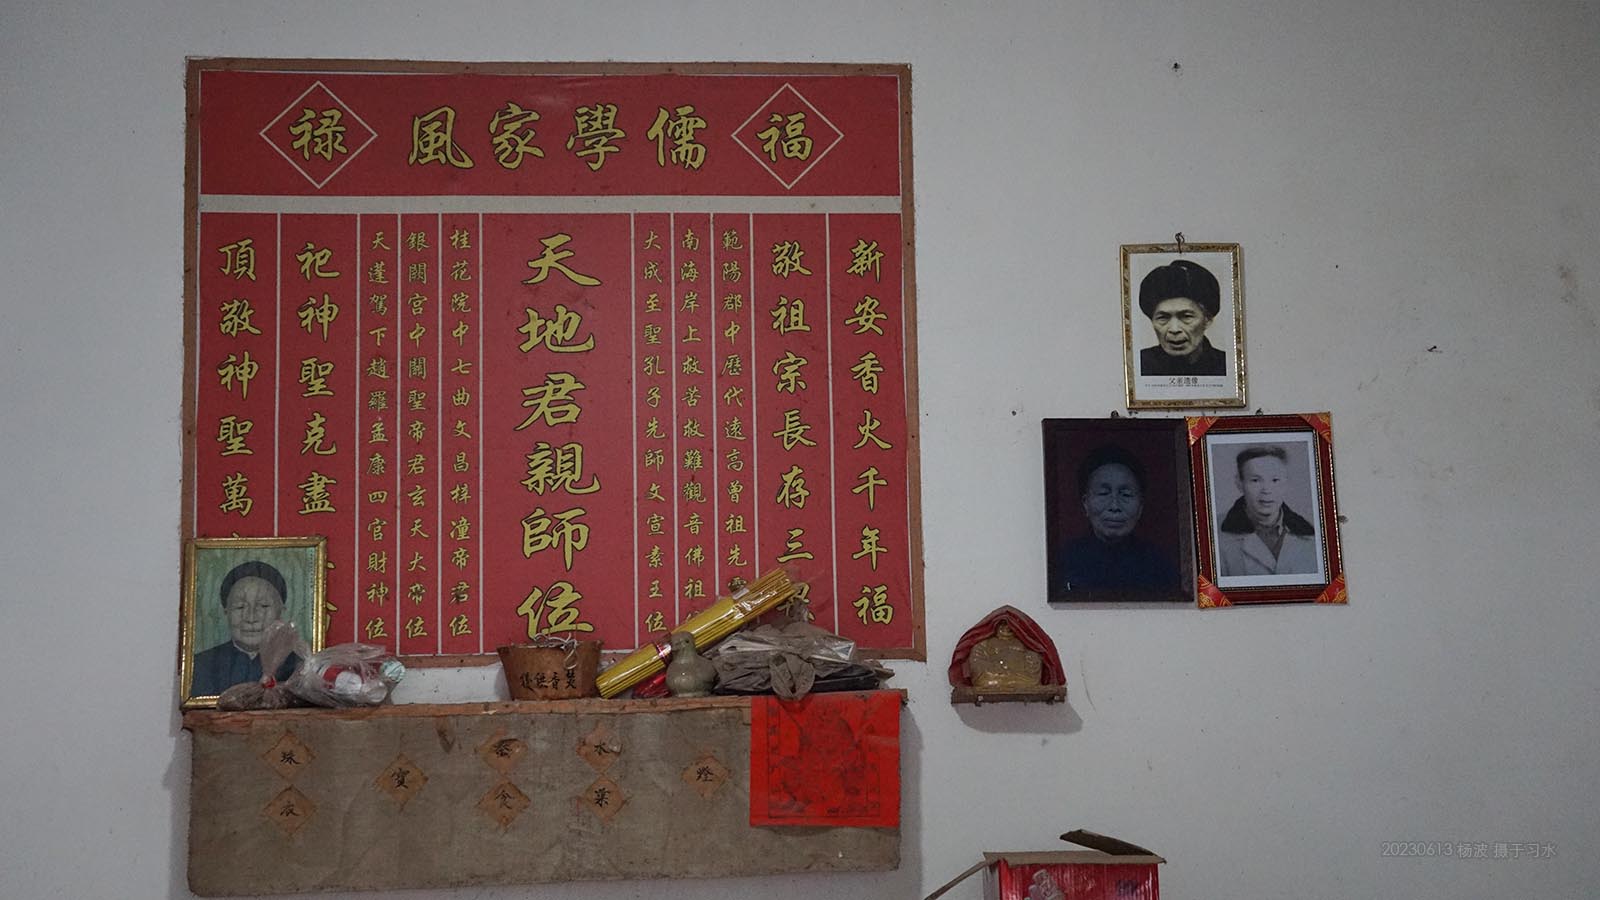 福 儒學家風 禄
新安香火千年福
敬祖宗長存三
範陽郡中歷代遠高曾祖先
南海岸上救苦救難觀音佛祖
大成至聖孔子先師文宣素王位
天地君親師位
桂花院中七曲文昌梓潼帝君位
銀闕宮中關聖帝君玄天大帝位
天蓬駕下趙羅孟康四官財神位
祀神聖克盡
頂敬神聖萬
父亲遗像
焚香
珠衣
寶
食
水菓
燈
20230613 杨波 摄于习水